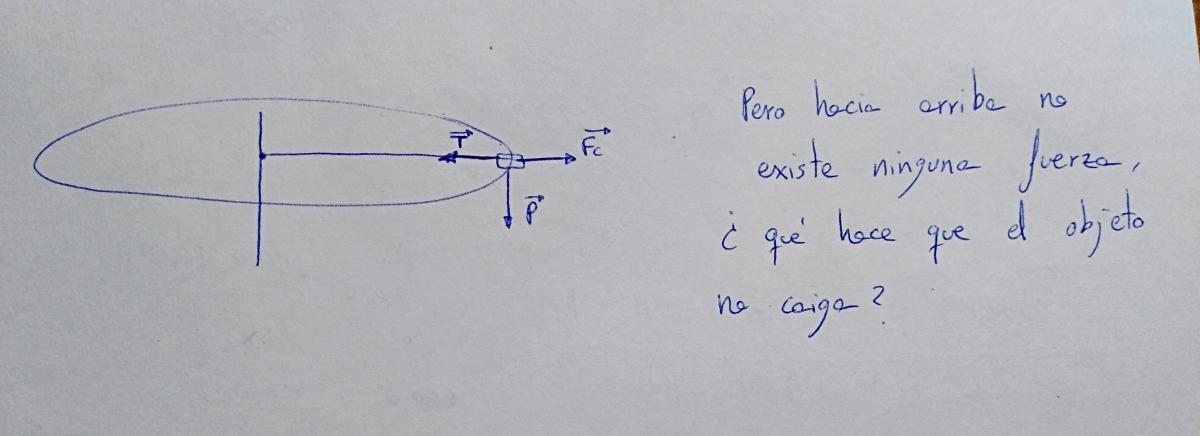 T
Fc
P
Pero hacia arriba no
existe ninguna fuerza,
¿ qué hace que el objeto
no caiga?